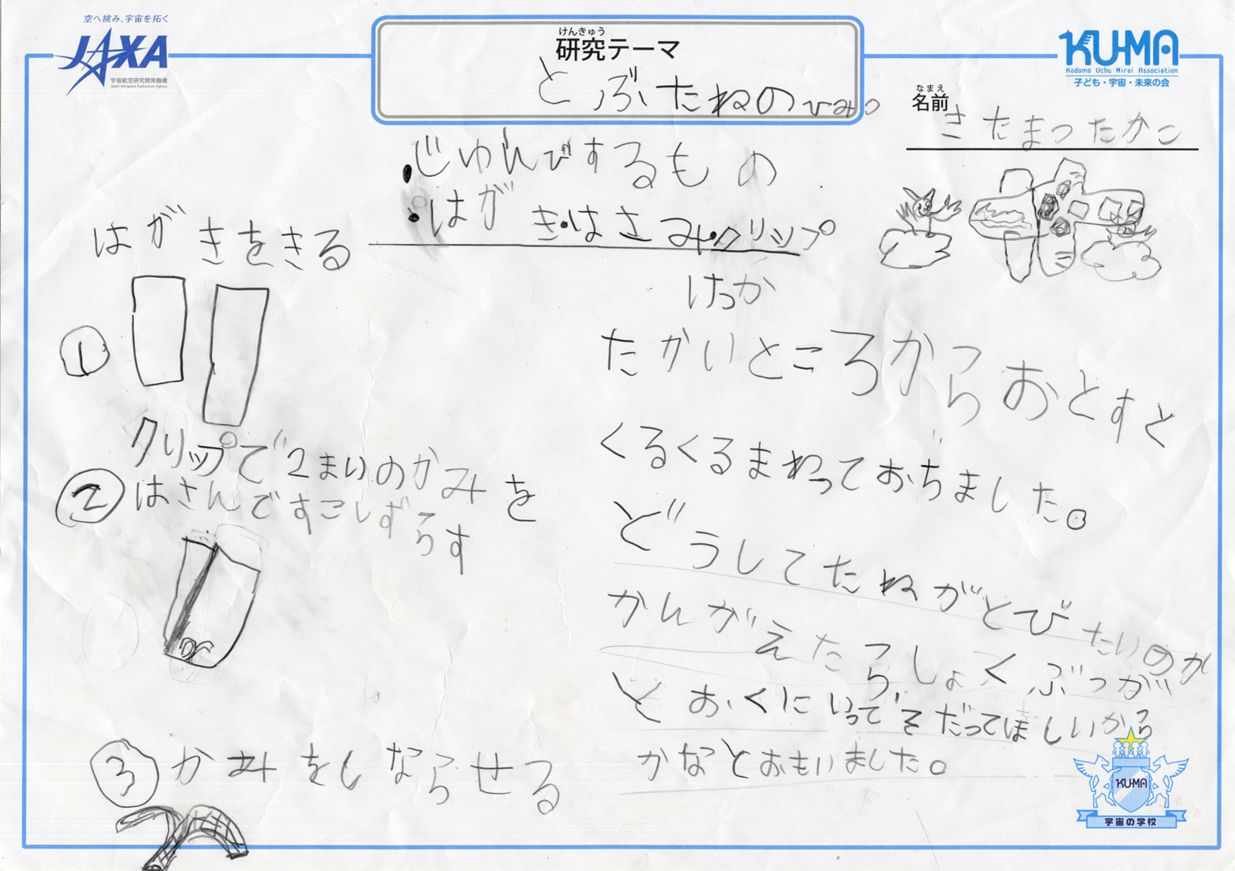 空へ挑み、宇宙を拓く
JAXA
宇宙航空研究開発機構
Japan Aerospace Exploration Agency
けんきゅう
研究テーマ
とぶたねのひみつ
KU-MA
Kodomo Uchu Mirai Association
子ども・宇宙・未来の会
なまえ
名前
きたまつたかこ
・じゅんびするもの
・はがき・はさみ・クリップ
はがきをきる
①
クリップで2まいのかみを
② はさんですこしずらす
③ かみをしならせる
けっか
たかいところからおとすと
くるくるまわっておちました。
どうしてたねがとびたいのか
かんがえたら、しょくぶつが
とおくにいってそだってほしいから
かなとおもいました。
KU-MA
宇宙の学校